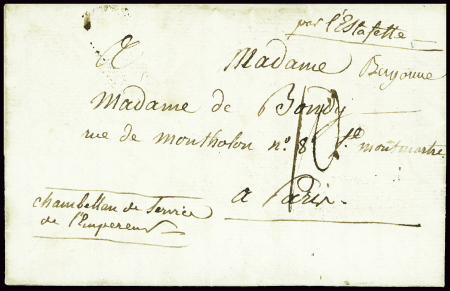 par l'Estafette
A Madame Bayonne
Madame de Bondy
rue de montholon n.° 8 f.g montmartre
a Paris.
chambellan de Service
de l'Empereur